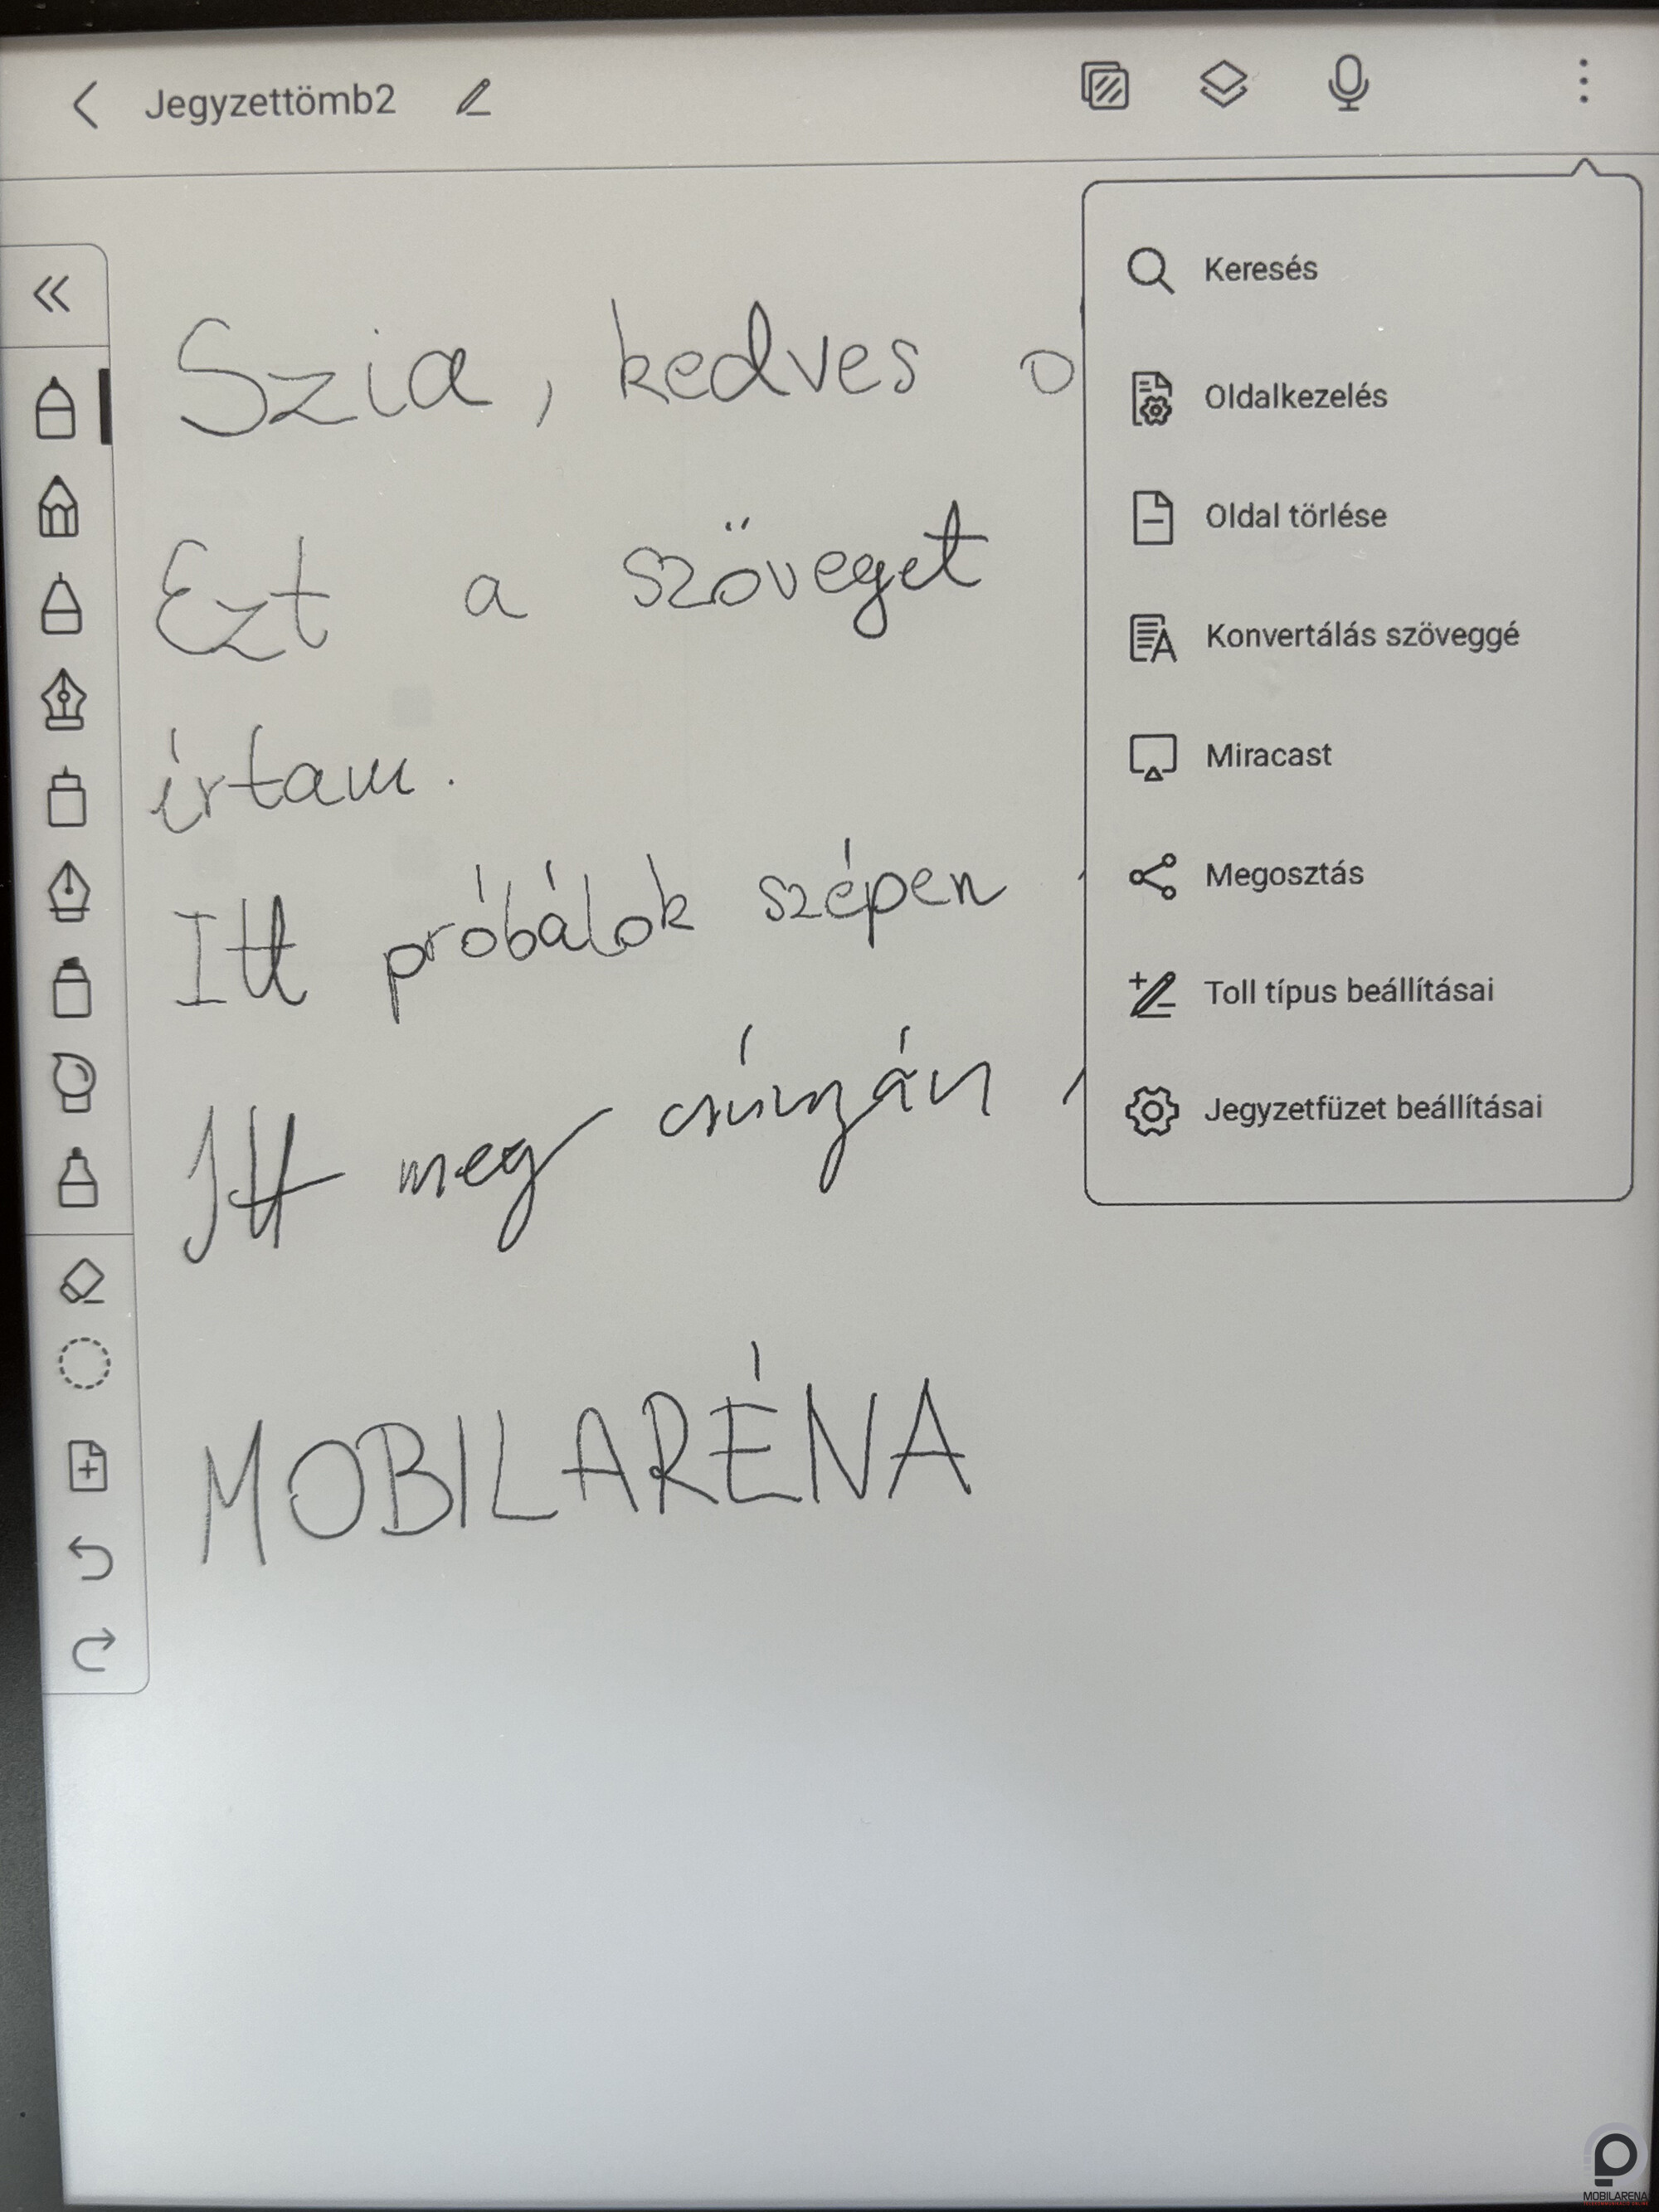 Jegyzettömb2
Szia, kedves o
Ezt a szöveget
írtam.
Itt próbálok szépen
Itt meg csúnyán
MOBILARÉNA
Keresés
Oldalkezelés
Oldal törlése
Konvertálás szöveggé
Miracast
Megosztás
Toll típus beállításai
Jegyzetfüzet beállításai
MOBILARENA